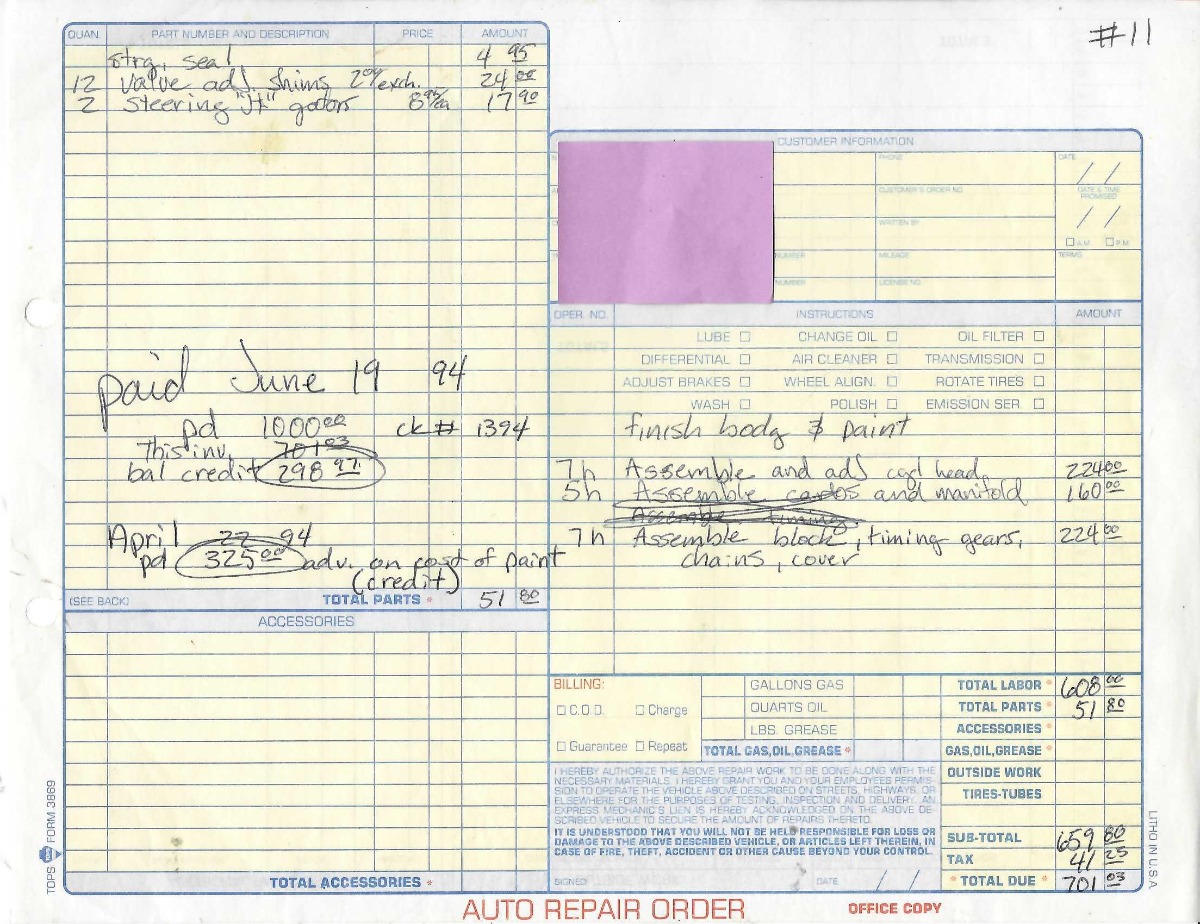 #11
QUAN. PART NUMBER AND DESCRIPTION PRICE AMOUNT
strg. seal 4 95
12 valve adj. shims 2 00/exch. 24 00
2 steering "Jt" gators 8 95/ea 17 90
paid June 19 94
pd 1000 00 ck# 1394
This inv. 701 03
bal credit 298 97
April 22 94
pd 325 00 adv. on cost of paint
(credit)
(SEE BACK) TOTAL PARTS 51 80
ACCESSORIES
TOTAL ACCESSORIES
TOPS FORM 3869
CUSTOMER INFORMATION
PHONE
DATE
/ /
CUSTOMER'S ORDER NO.
DATE & TIME PROMISED
/ /
WRITTEN BY
A.M. P.M.
NUMBER MILEAGE TERMS
NUMBER LICENSE NO.
OPER. NO. INSTRUCTIONS AMOUNT
LUBE CHANGE OIL OIL FILTER
DIFFERENTIAL AIR CLEANER TRANSMISSION
ADJUST BRAKES WHEEL ALIGN. ROTATE TIRES
WASH POLISH EMISSION SER
finish body & paint
7h Assemble and adj cyl head 224 00
5h Assemble carbs and manifold 160 00
Assemble timing
7h Assemble block, timing gears, 224 00
chains, cover
BILLING:
C.O.D. Charge
Guarantee Repeat
GALLONS GAS
QUARTS OIL
LBS. GREASE
TOTAL GAS,OIL,GREASE
TOTAL LABOR 608 00
TOTAL PARTS 51 80
ACCESSORIES
GAS,OIL,GREASE
OUTSIDE WORK
TIRES-TUBES
SUB-TOTAL 659 80
TAX 41 25
TOTAL DUE 701 03
I HEREBY AUTHORIZE THE ABOVE REPAIR WORK TO BE DONE ALONG WITH THE
NECESSARY MATERIALS. I HEREBY GRANT YOU AND YOUR EMPLOYEES PERMIS-
SION TO OPERATE THE VEHICLE ABOVE DESCRIBED ON STREETS, HIGHWAYS, OR
ELSEWHERE FOR THE PURPOSES OF TESTING, INSPECTION AND DELIVERY. AN
EXPRESS MECHANIC'S LIEN IS HEREBY ACKNOWLEDGED ON THE ABOVE DE-
SCRIBED VEHICLE TO SECURE THE AMOUNT OF REPAIRS THERETO.
IT IS UNDERSTOOD THAT YOU WILL NOT BE HELD RESPONSIBLE FOR LOSS OR
DAMAGE TO THE ABOVE DESCRIBED VEHICLE, OR ARTICLES LEFT THEREIN, IN
CASE OF FIRE, THEFT, ACCIDENT OR OTHER CAUSE BEYOND YOUR CONTROL.
SIGNED DATE / /
LITHO IN U.S.A.
AUTO REPAIR ORDER OFFICE COPY